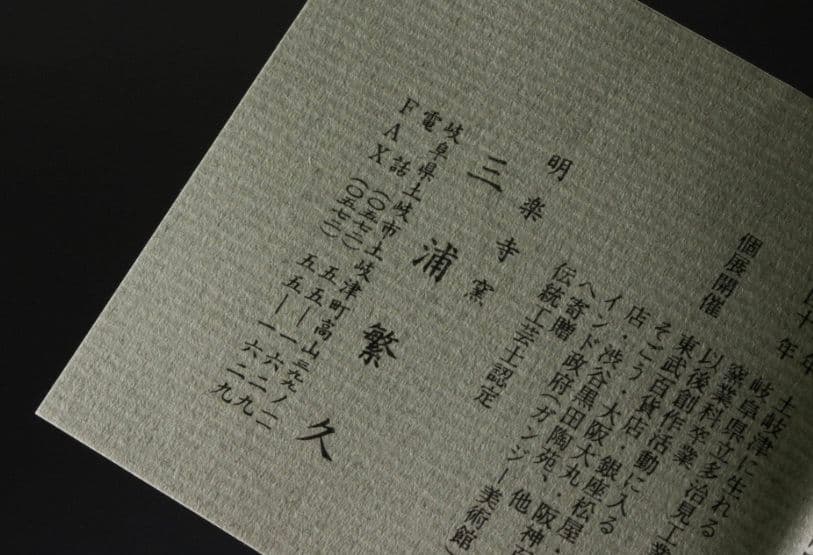 土岐津に生れる
岐阜県立多治見工業
窯業科卒業
以後創作活動に入る
個展開催
東武百貨店・銀座松屋・
そごう・大阪大丸・阪神
店・渋谷黒田陶苑、他
インド政府(ガンジー美術館)
へ寄贈
伝統工芸士認定
明楽寺窯
三浦繁久
岐阜県土岐市土岐津町高山三九九ノ二
電話(〇五七二)五五―一六二九
FAX(〇五七二)五五―一六二九